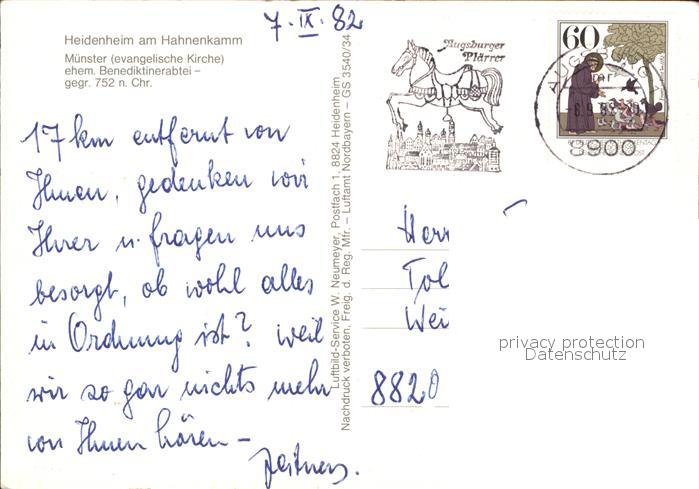 7. IX. 82
Heidenheim am Hahnenkamm
Münster (evangelische Kirche)
ehem. Benediktinerabtei –
gegr. 752 n. Chr.
17 km entfernt von
Ihnen, gedenken wir
Ihrer u. fragen uns
besorgt, ob wohl alles
in Ordnung ist? weil
wir so gar nichts mehr
von Ihnen hören –
Luftbild-Service W. Neumeyer, Postfach 1, 8824 Heidenheim
Nachdruck verboten, Freig. d. Reg. Mfr. – Luftamt Nordbayern – GS 3540/34
Augsburger
Plärrer
60
8900
Herr
Tol
Wei
8820
privacy protection
Datenschutz